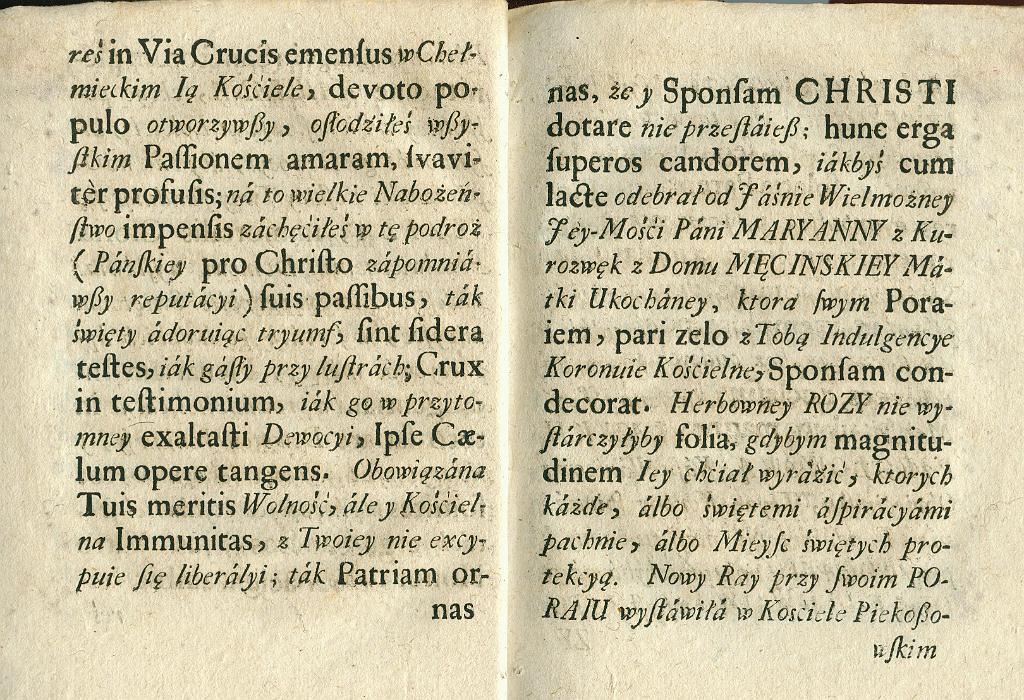 reś in Via Crucis emenſus w Cheł-
mieckim Ią Kośćiele, devoto po-
pulo otworzywßy, oſłodźiłeś wßy-
ſtkim Paſſionem amaram, ſvavi-
tèr profuſis; ná to wielkie Nabożeń-
ſtwo impenſis záchęćiłeś w tę podroż
( Páńſkiey pro Chriſto zápomniá-
wßy reputácyi ) ſuis paſſibus, ták
święty ádoruiąc tryumf, ſint ſidera
teſtes, iák gáſły przy luſtrách; Crux
in teſtimonium, iák go w przyto-
mney exaltaſti Dewocyi, Ipſe Cæ-
lum opere tangens. Obowiązána
Tuis meritis Wolność, ále y Kośćiel-
na Immunitas, z Twoiey nie excy-
puie ſię liberályi; ták Patriam or-
nas
nas, że y Sponſam CHRISTI
dotare nie przeſtáieß; hunc erga
ſuperos candorem, iákbyś cum
lacte odebrał od Jáśnie Wielmożney
Jey-Mośći Páni MARYANNY z Ku-
rozwęk z Domu MĘCINSKIEY Má-
tki Ukocháney, ktora ſwym Pora-
iem, pari zelo z Tobą Indulgencye
Koronuie Kośćielne, Sponſam con-
decorat. Herbowney ROZY nie wy-
ſtárczyłyby folia, gdybym magnitu-
dinem Iey chćiał wyráźić, ktorych
káżde, álbo świętemi áſpirácyámi
pachnie, álbo Mieyſc świętych pro-
tekcyą. Nowy Ray przy ſwoim PO-
RAIU wyſtáwiłá w Kośćiele Piekoßo-
wſkim